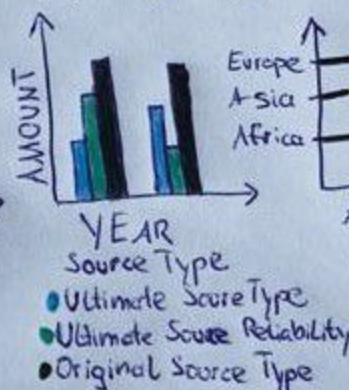 AMOUNT
YEAR
Source Type
Ultimate Soure Type
Ultimate Soure Reliability
Original Source Type
Europe
Asia
Africa